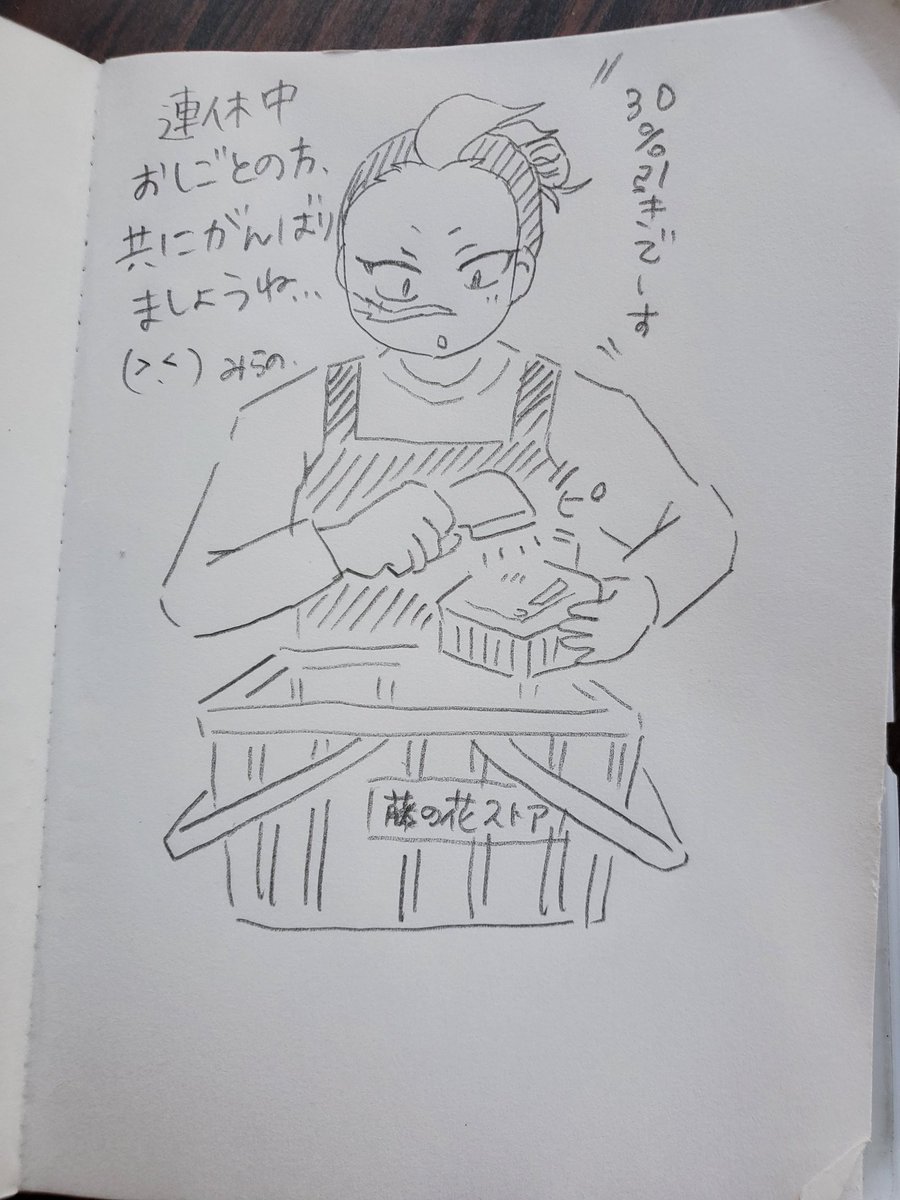 連休中
おしごとの方、
共にがんばり
ましょうね…
(>.<) みらの.
30%引きでーす
ピ
藤の花ストア